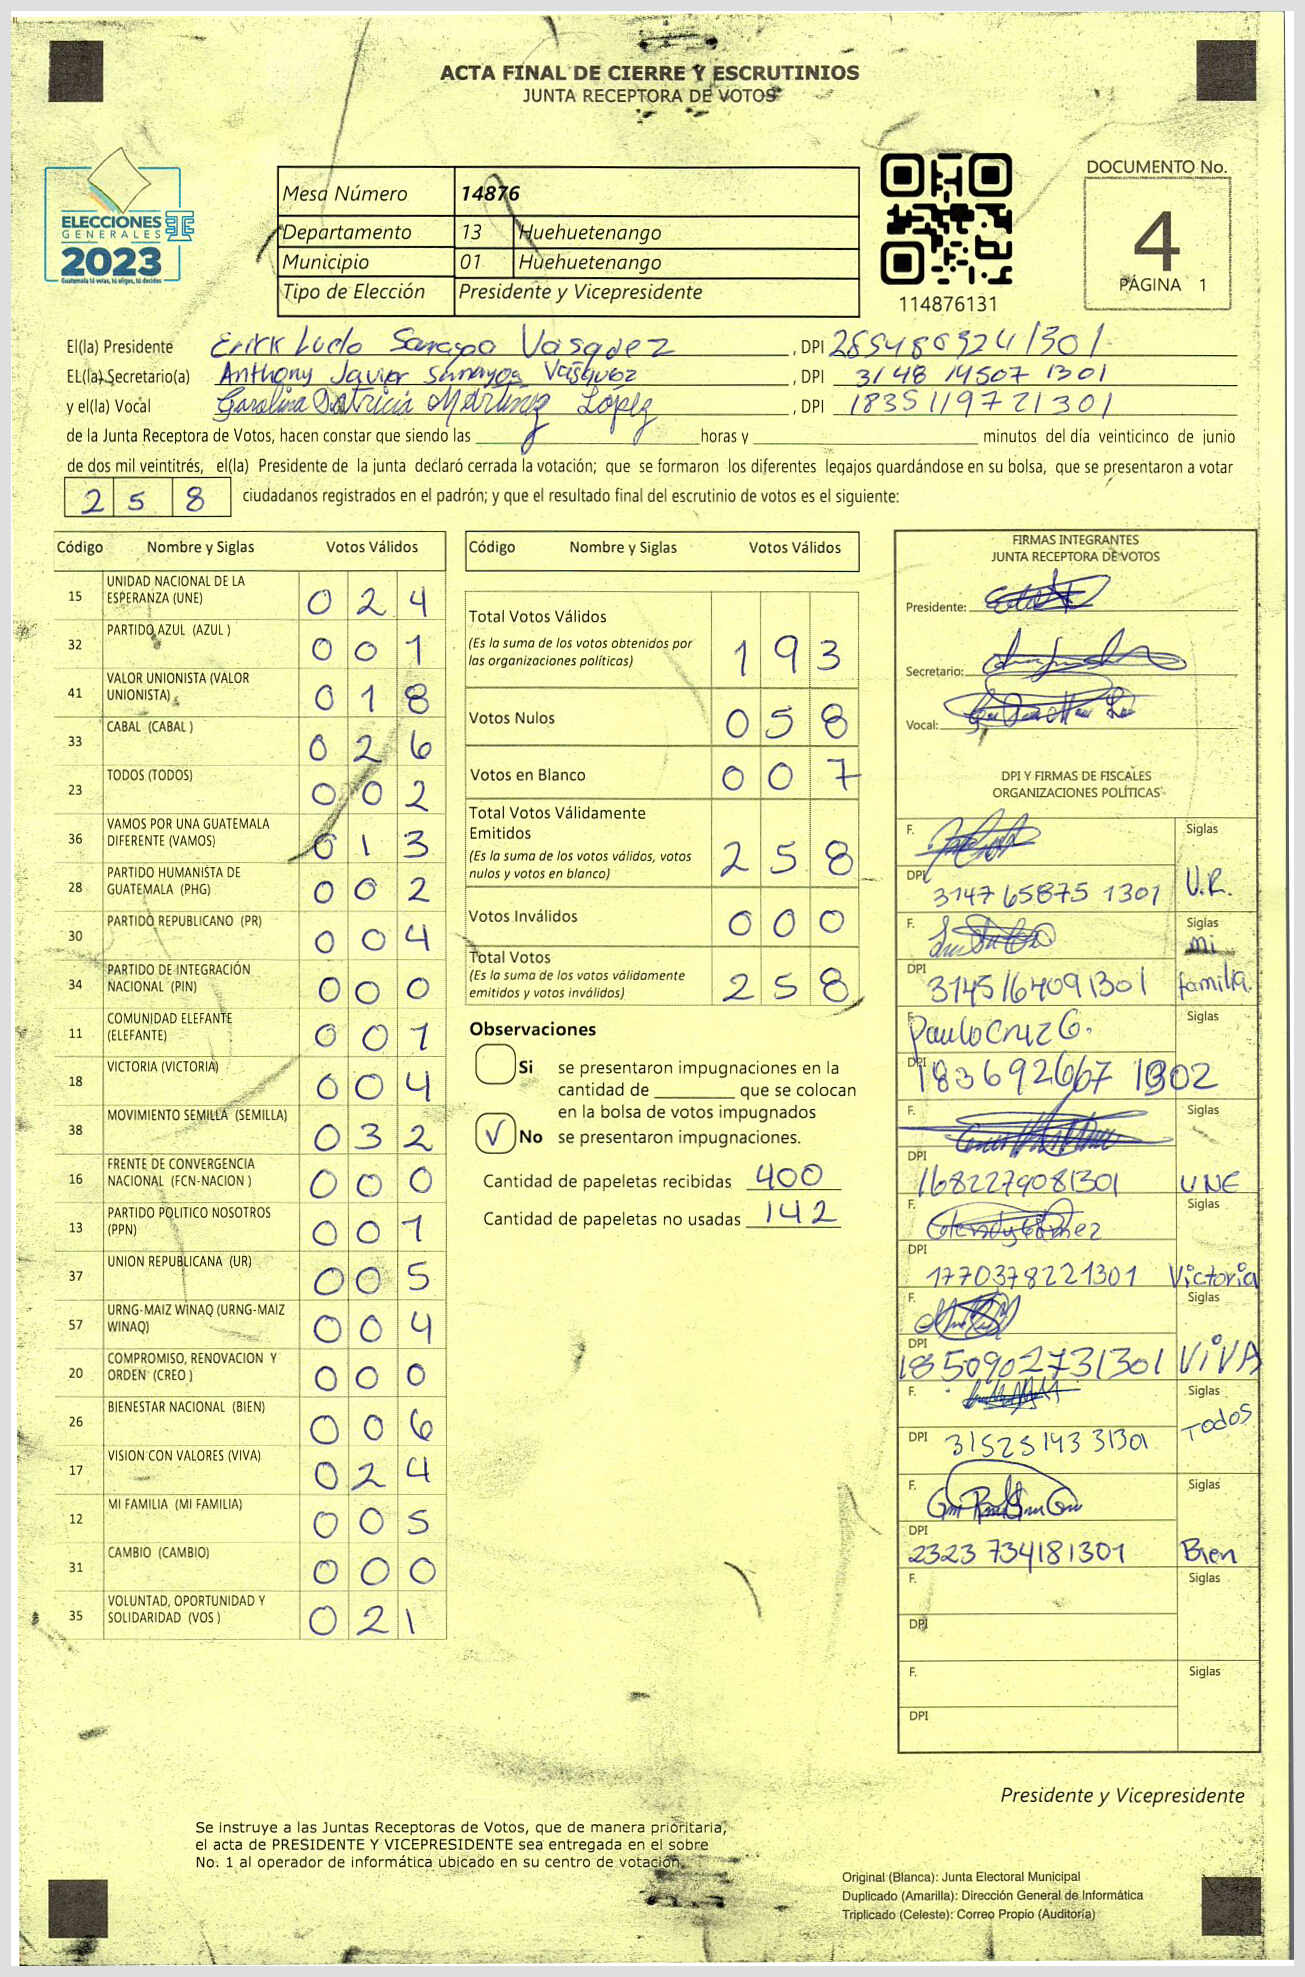 ACTA FINAL DE CIERRE Y ESCRUTINIOS
JUNTA RECEPTORA DE VOTOS
ELECCIONES
GENERALES
2023
Guatemala tú votas, tú eliges, tú decides
Mesa Número 14876
Departamento 13 Huehuetenango
Municipio 01 Huehuetenango
Tipo de Elección Presidente y Vicepresidente
114876131
DOCUMENTO No.
4
PÁGINA 1
El(la) Presidente Vasquez , DPI
EL(la) Secretario(a) Anthony Javier Samayoa Vásquez , DPI 3148 14507 1301
y el(la) Vocal Carolina Patricia Martínez López , DPI 1835119721301
de la Junta Receptora de Votos, hacen constar que siendo las horas y minutos del día veinticinco de junio
de dos mil veintitrés, el(la) Presidente de la junta declaró cerrada la votación; que se formaron los diferentes legajos guardándose en su bolsa, que se presentaron a votar
258 ciudadanos registrados en el padrón; y que el resultado final del escrutinio de votos es el siguiente:
Código Nombre y Siglas Votos Válidos
15 UNIDAD NACIONAL DE LA ESPERANZA (UNE) 024
32 PARTIDO AZUL (AZUL ) 001
41 VALOR UNIONISTA (VALOR UNIONISTA) 018
33 CABAL (CABAL ) 026
23 TODOS (TODOS) 002
36 VAMOS POR UNA GUATEMALA DIFERENTE (VAMOS) 013
28 PARTIDO HUMANISTA DE GUATEMALA (PHG) 002
30 PARTIDO REPUBLICANO (PR) 004
34 PARTIDO DE INTEGRACIÓN NACIONAL (PIN) 000
11 COMUNIDAD ELEFANTE (ELEFANTE) 001
18 VICTORIA (VICTORIA) 004
38 MOVIMIENTO SEMILLA (SEMILLA) 032
16 FRENTE DE CONVERGENCIA NACIONAL (FCN-NACION ) 000
13 PARTIDO POLITICO NOSOTROS (PPN) 001
37 UNION REPUBLICANA (UR) 005
57 URNG-MAIZ WINAQ (URNG-MAIZ WINAQ) 004
20 COMPROMISO, RENOVACION Y ORDEN (CREO ) 000
26 BIENESTAR NACIONAL (BIEN) 006
17 VISION CON VALORES (VIVA) 024
12 MI FAMILIA (MI FAMILIA) 005
31 CAMBIO (CAMBIO) 000
35 VOLUNTAD, OPORTUNIDAD Y SOLIDARIDAD (VOS ) 021
Código Nombre y Siglas Votos Válidos
Total Votos Válidos 193
(Es la suma de los votos obtenidos por
las organizaciones políticas)
Votos Nulos 058
Votos en Blanco 007
Total Votos Válidamente
Emitidos 258
(Es la suma de los votos válidos, votos
nulos y votos en blanco)
Votos Inválidos 000
Total Votos 258
(Es la suma de los votos válidamente
emitidos y votos inválidos)
Observaciones
Si se presentaron impugnaciones en la
cantidad de que se colocan
en la bolsa de votos impugnados
V No se presentaron impugnaciones.
Cantidad de papeletas recibidas 400
Cantidad de papeletas no usadas 142
FIRMAS INTEGRANTES
JUNTA RECEPTORA DE VOTOS
Presidente:
Secretario:
Vocal:
DPI Y FIRMAS DE FISCALES
ORGANIZACIONES POLÍTICAS
F. Siglas
DPI 3147 65875 1301 U.R.
F. Siglas mi
DPI 3145164091301 familia.
F. Paulo Cruz G. Siglas
DPI 183692667 1302
F. Siglas
DPI 1682279081301 UNE
F. Siglas
DPI 1770378221301 Victoria
F. Siglas
DPI 1850902731301 ViVA
F. Siglas
DPI 3152514331301 Todos
F. Siglas
DPI 2323 734181301 Bien
F. Siglas
DPI
F. Siglas
DPI
Presidente y Vicepresidente
Se instruye a las Juntas Receptoras de Votos, que de manera prioritaria,
el acta de PRESIDENTE Y VICEPRESIDENTE sea entregada en el sobre
No. 1 al operador de informática ubicado en su centro de votación.
Original (Blanca): Junta Electoral Municipal
Duplicado (Amarilla): Dirección General de Informática
Triplicado (Celeste): Correo Propio (Auditoría)